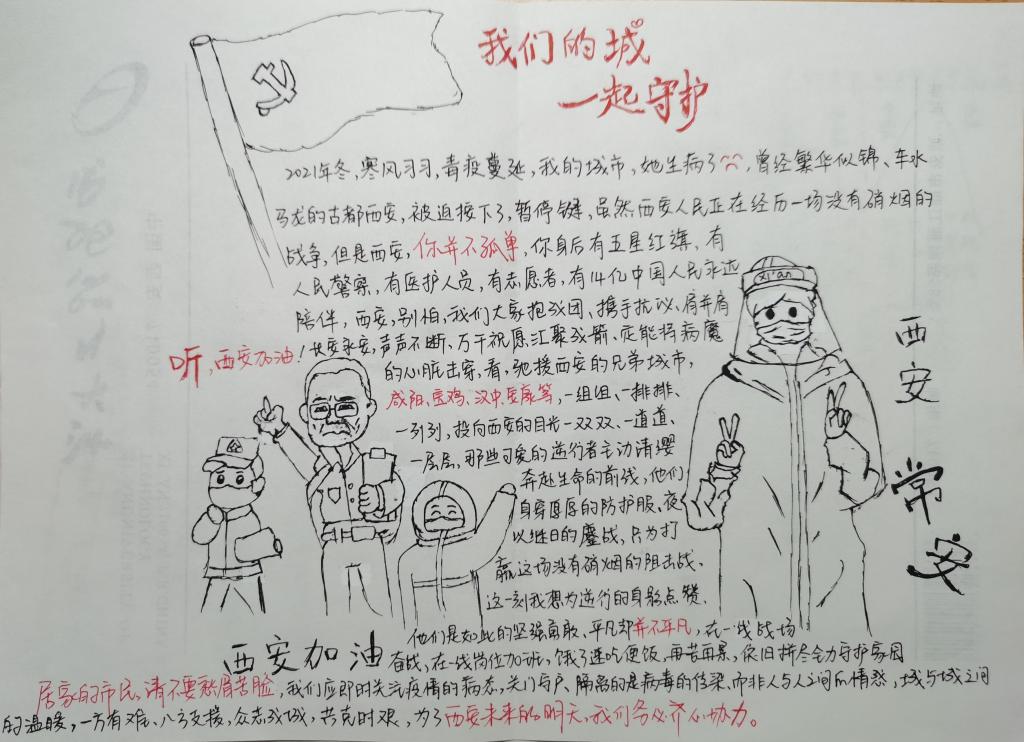 我们的城
一起守护
2021年冬,寒风习习,毒疫蔓延,我的城市,她生病了,曾经繁华似锦、车水
马龙的古都西安,被迫按下了,暂停键,虽然西安人民正在经历一场没有硝烟的
战争,但是西安,你并不孤单,你身后有五星红旗,有
人民警察,有医护人员,有志愿者,有14亿中国人民永远
陪伴,西安,别怕,我们大家抱成团、携手抗议、肩并肩
听,西安加油!长安永安,声声不断,万千祝愿汇聚成箭、定能将病魔
的心脏击穿,看,驰援西安的兄弟城市,
咸阳、宝鸡、汉中、安康等,一组组、一排排、
一列列,投向西安的目光一双双、一道道、
一层层,那些可爱的逆行者主动请缨
奔赴生命的前线,他们
身穿厚厚的防护服、夜
以继日的鏖战,只为打
赢这场没有硝烟的阻击战、
这一刻我想为逆行的身影点赞、
他们是如此的坚强勇敢、平凡却并不平凡,在一线战场
奋战,在一线岗位加班,饿了速吃便饭,再苦再累,依旧拼尽全力守护家园
居家的市民,请不要愁眉苦脸,我们应即时关注疫情的病态,关门与户、隔离的是病毒的传染、而非人与人之间的情感,城与城之间
的温暖,一方有难、八方支援,众志成城,共克时艰,为了西安未来的明天,我们务必齐心协力。
xi'an
西安
常安
西安加油